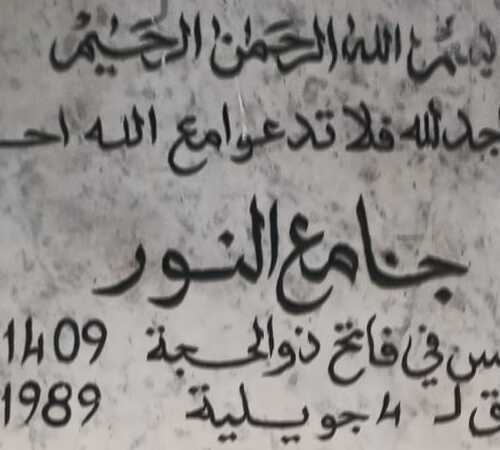 بسم الله الرحمن الرحيم
جد لله فلا تدعوا مع الله احـ
جامع النور
ـس في فاتح ذو الحجة 1409
ـق لـ 4 جويلية 1989